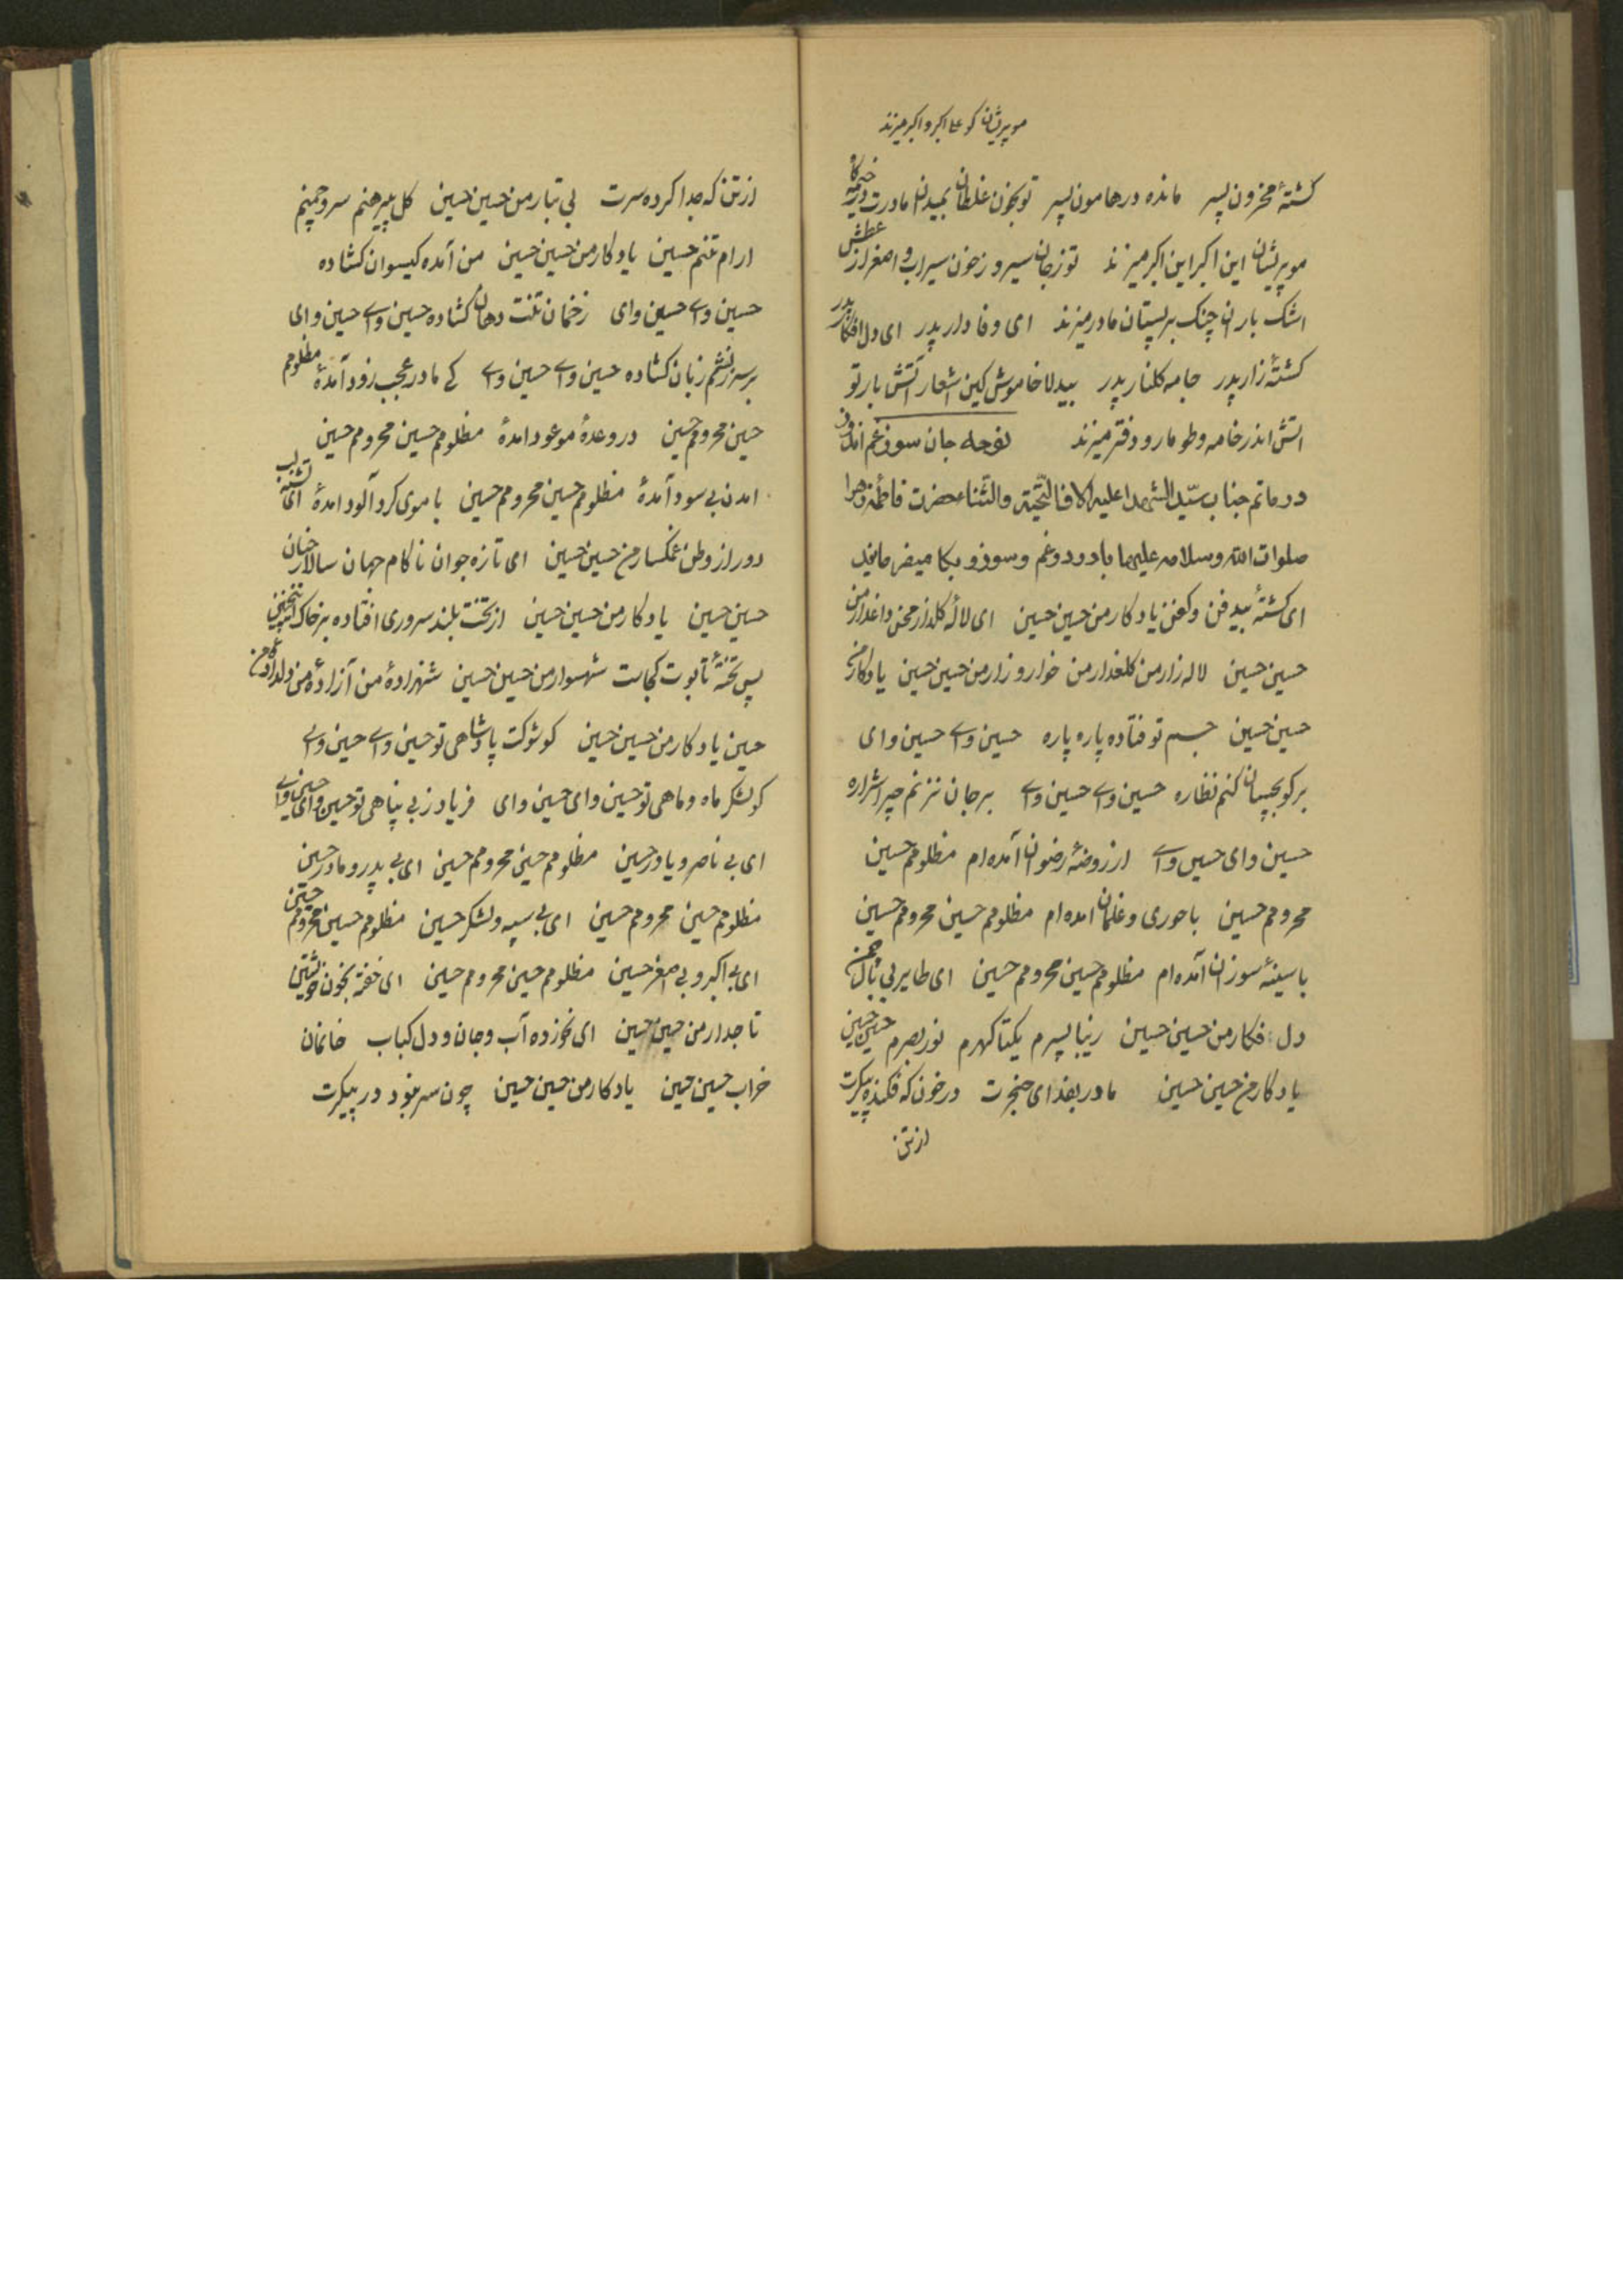 مو پریشان کو علی اکبر و اکبر میزند
کشتهٔ محزون پسر مانده در هامون پسر تو بخون غلطان بمیدان مادرت در خیمه‌گاه
مو پریشان این اکبر این اکبر میزند تو ز جان سیر و ز خون سیراب و اصغر از عطش
اشک باران چنک بر پستان مادر میزند ای وفادار پدر ای دل افکار پدر
کشتهٔ زار پدر جامه کلنار پدر بیدلا خاموش کین اشعار آتش بار تو
اتش اندر خامه و طومار و دفتر میزند نوحه جان سوز غم اندوز
در ماتم جناب سیّد الشهدا علیه الاف التّحیّة والثّنا حضرت فاطمه زهرا
صلوات اللّه وسلامه علیهما با درد و غم و سوز و بکا میفرمایند
ای کشتهٔ بیدفن و کفن یادکار من حسین حسین ای لالهٔ کلذار محن داغدار من
حسین حسین لاله زار من کلعذار من خوار و زار من حسین حسین یادکار من
حسین حسین جسم تو فتاده پاره پاره حسین وای حسین وای
بر کو بچسان کنم نظاره حسین وای حسین وای بر جان نزنم چرا شراره
حسین وای حسین وای از روضهٔ رضوان آمده‌ام مظلومم حسین
محرومم حسین با حوری و غلمان امده‌ام مظلومم حسین محرومم حسین
با سینهٔ سوزان آمده‌ام مظلومم حسین محرومم حسین ای طایر بی بال چمن
دل فکار من حسین حسین زیبا پسرم یکتا کهرم نور بصرم حسین حسین
یادکار من حسین حسین مادر بفدای حنجرت در خون که فکنده پیکرت
از تن
از تن که جدا کرده سرت بی تبار من حسین حسین کل پیرهنم سرو چمنم
ارام تنم حسین یادکار من حسین حسین من آمده کیسوان کشاده
حسین وای حسین وای زخمان تنت دهان کشاده حسین وای حسین وای
بر سرزنشم زبان کشاده حسین وای حسین وای کے مادر عجب زود آمدهٔ مظلومم
حسین محرومم حسین در وعدهٔ موعود امدهٔ مظلومم حسین محرومم حسین
امدن بی سود آمدهٔ مظلومم حسین محرومم حسین با موی کرد آلود امدهٔ ای تشنه لب
دور از وطن غمکسار من حسین حسین ای تازه جوان ناکام جهان سالار جنان
حسین حسین یادکار من حسین حسین از تخت بلند سروری افتاده بر خاک
پس تختهٔ تابوت کجاست شهسوار من حسین حسین شهزادهٔ من آزادهٔ من دلدادهٔ من
حسین یادکار من حسین حسین کو شوکت پادشاهی تو حسین وای حسین وای
کو لشکر ماه و ماهی تو حسین وای حسین وای فریاد ز بی پناهی تو حسین وای حسین وای
ای بی ناصر و یاور حسین مظلومم حسین محرومم حسین ای بی پدر و مادر حسین
مظلومم حسین محرومم حسین ای بی سپه و لشکر حسین مظلومم حسین محرومم حسین
ای بی اکبر و بی اصغر حسین مظلومم حسین محرومم حسین ای خفته بخون خویشتن
تاجدار من حسین حسین ای نخورده آب و جان و دل کباب خانمان
خراب حسین حسین یادکار من حسین حسین چون سر نبود در پیکرت